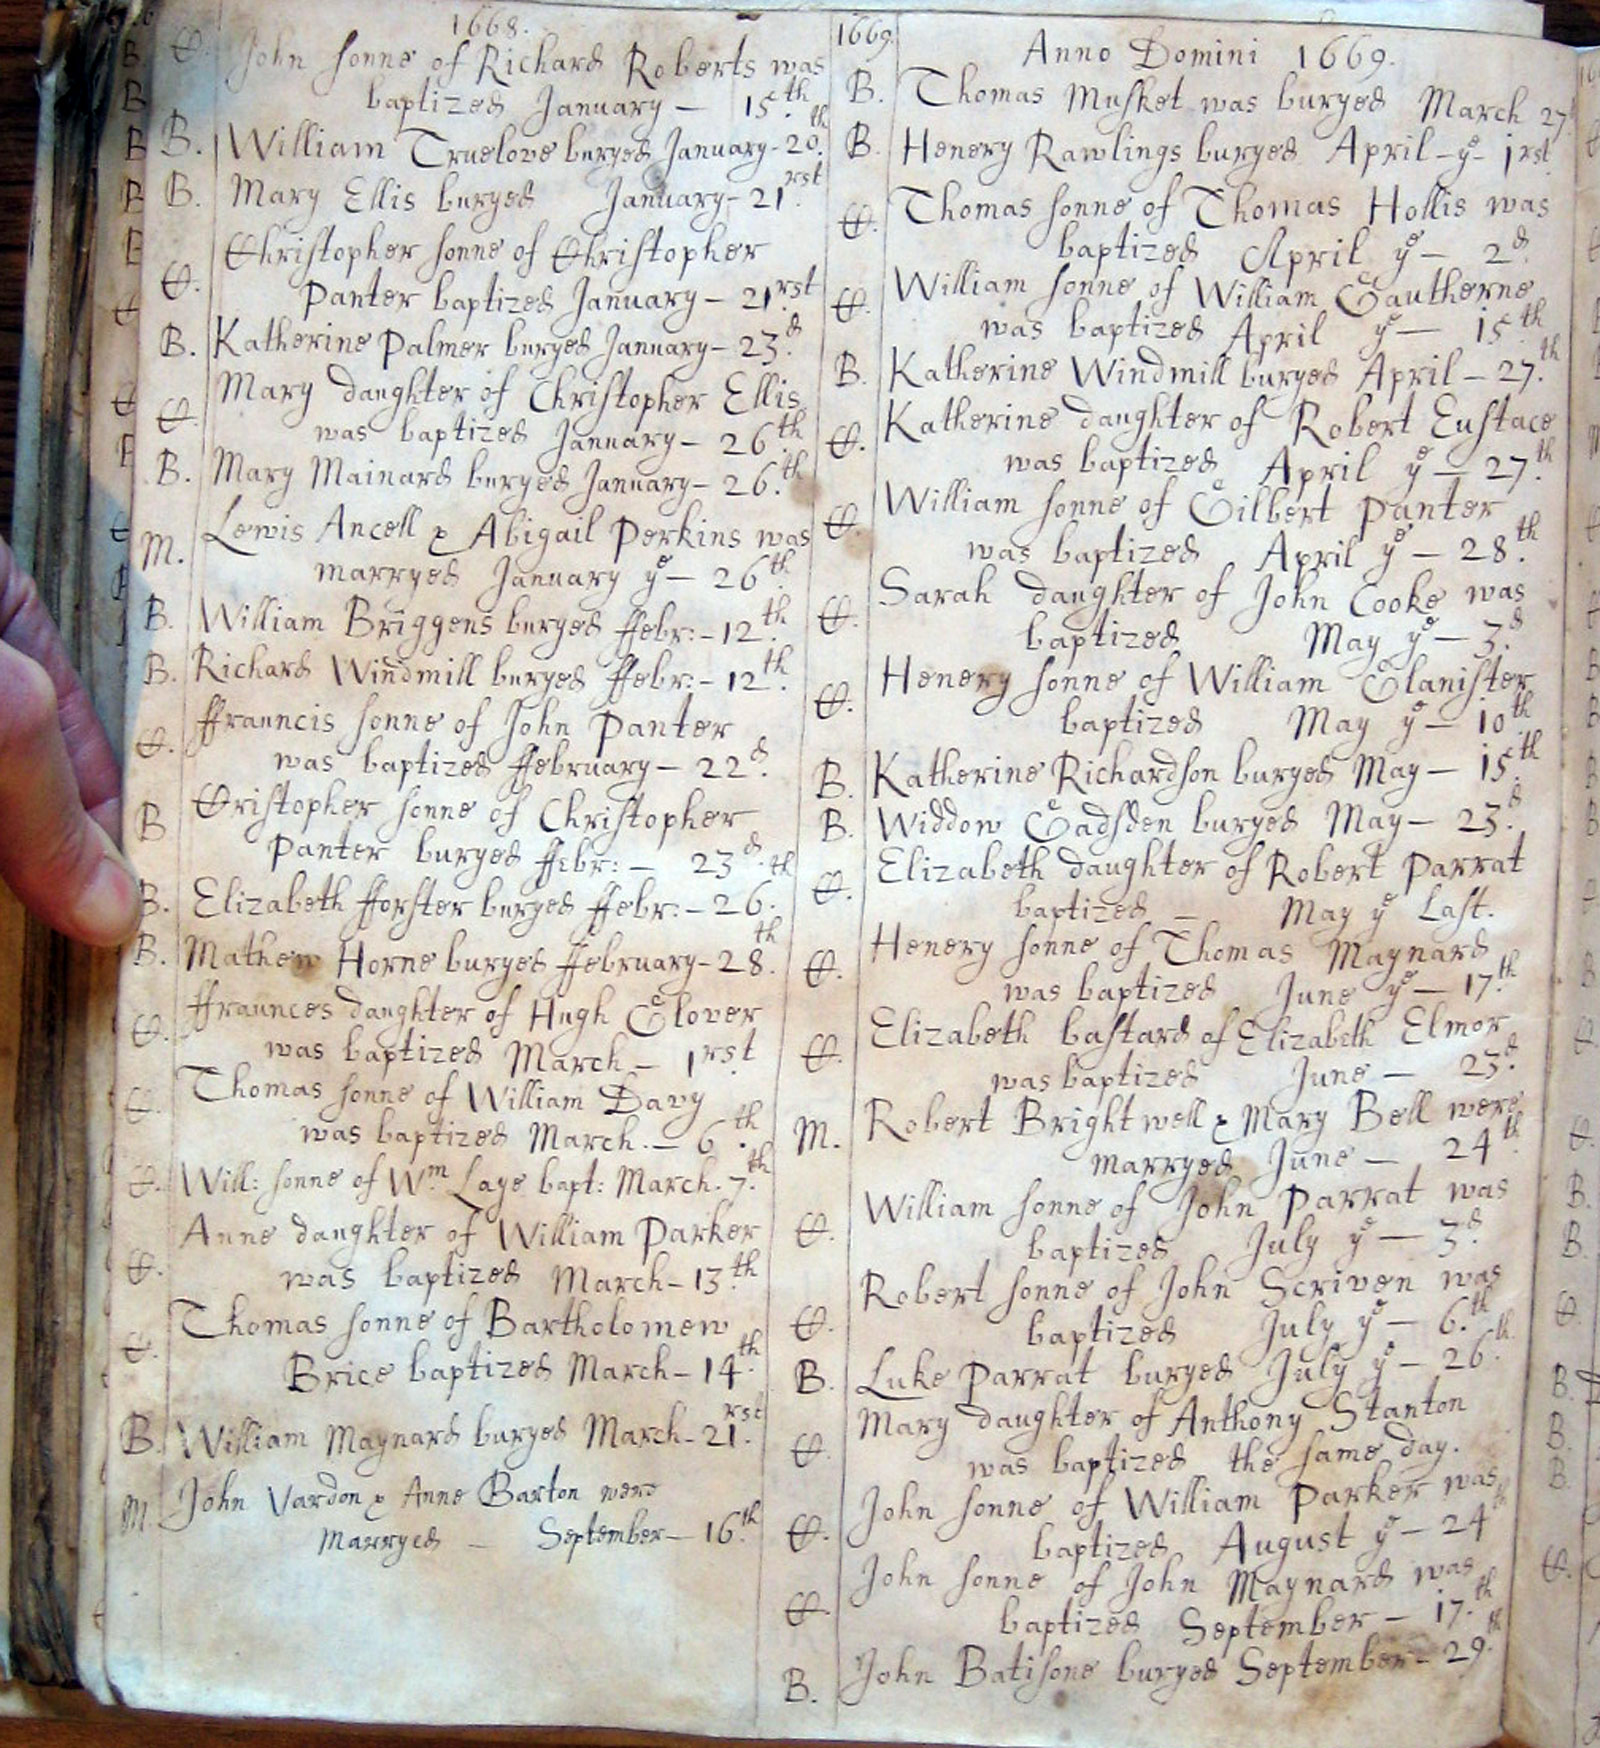 1668.
C. John sonne of Richard Roberts was
baptized January — 15.th
B. William Truelove buryed January - 20.th
B. Mary Ellis buryed January - 21.rst
Christopher sonne of Christopher
C. Panter baptized January — 21rst
B. Katherine Palmer buryed January — 23.d
Mary daughter of Christopher Ellis
C. was baptized January — 26.th
B. Mary Mainard buryed January — 26.th
Lewis Ancell & Abigail Perkins was
M. marryed January ye — 26.th
B. William Briggens buryed ffebr: - 12.th
B. Richard Windmill buryed ffebr: - 12.th
ffrauncis sonne of John Panter
C. was baptized ffebruary — 22.d
Cristopher sonne of Christopher
B Panter buryed ffebr: — 23d.
B. Elizabeth fforster buryed ffebr: - 26.th
B. Mathew Horne buryed ffebruary - 28.th
ffraunces daughter of Hugh Glover
C. was baptized March — 1rst
Thomas sonne of William Davy
C. was baptized March. — 6.th
C. Will: sonne of Wm Laye bapt: March. 7.th
Anne daughter of William Parker
C. was baptized March — 13.th
Thomas sonne of Bartholomew
C. Brice baptized March — 14.th
B. William Maynard buryed March - 21.rst
John Vardon & Anne Barton were
M. Marryed — September — 16.th
1669.
Anno Domini 1669.
B. Thomas Musket was buryed March 27
B. Henery Rawlings buryed April - ye - 1rst
Thomas sonne of Thomas Hollis was
C. baptized April ye — 2d.
William sonne of William Gautherne
C. was baptized April ye — 15.th
B. Katherine Windmill buryed April — 27.th
Katherine daughter of Robert Eustace
C. was baptized April ye — 27.th
William sonne of Gilbert Panter
C. was baptized April ye — 28.th
Sarah daughter of John Cooke was
C. baptized May ye — 3.d
Henery sonne of William Glanister
C. baptized May ye — 10th
B. Katherine Richardson buryed May — 15.th
B. Widdow Gadsden buryed May — 23.d
Elizabeth daughter of Robert Parrat
C. baptized — May ye Last.
Henery sonne of Thomas Maynard
C. was baptized June ye — 17.th
Elizabeth bastard of Elizabeth Elmor
C. was baptized June — 23.d
Robert Brightwell & Mary Bell were
M. marryed June — 24th.
William sonne of John Parrat was
C. baptized July ye — 3.d
Robert sonne of John Scriven was
C. baptized July ye — 6.th
B. Luke Parrat buryed July ye — 26.th
Mary daughter of Anthony Stanton
C. was baptized the same day.
John sonne of William Parker was
C. baptized August ye — 24th
John sonne of John Maynard was
C. baptized September — 17.th
B. John Batisone buryed September — 29.th